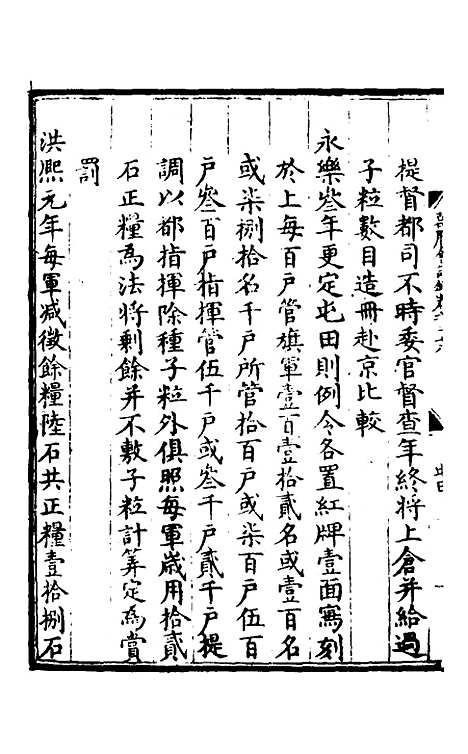 提督都司不時委官督查年終將上倉并給過
子粒數目造冊赴京比較
永樂叄年更定屯田則例令各置紅牌壹面寫刻
於上每百戶管旗軍壹百壹拾貳名或壹百名
或柒捌拾名千戶所管拾百戶或柒百戶伍百
戶叄百戶指揮管伍千戶或叄千戶貳千戶提
調以都指揮除種子粒外俱照每軍歲用拾貳
石正糧為法將剩餘并不敷子粒計筭定為賞
罰
洪熙元年每軍減徵餘糧陸石共正糧壹拾捌石